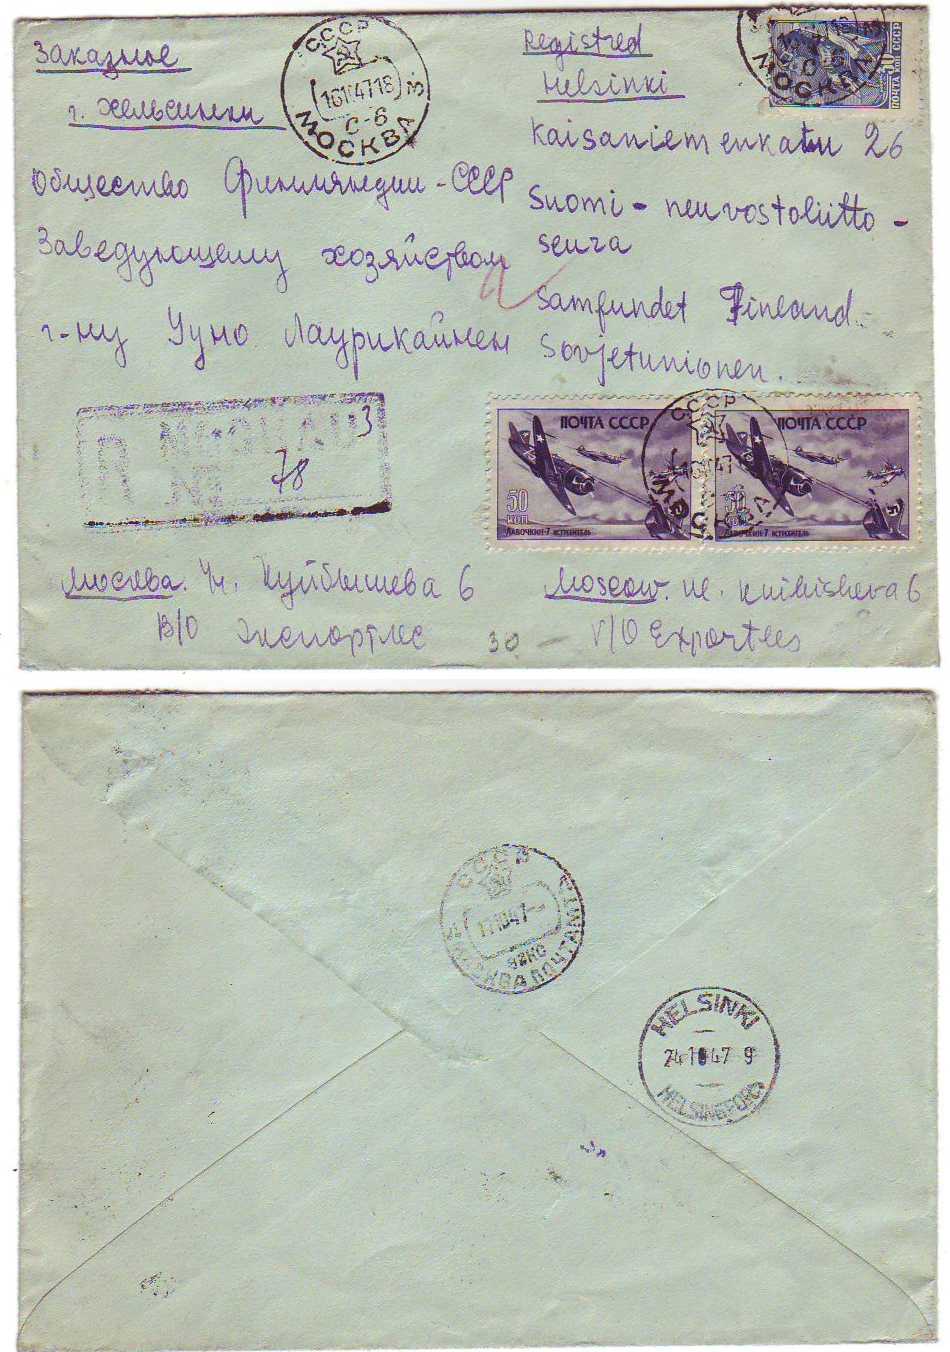 Заказное
г. Хельсинки
Общество Финляндии-СССР
Заведующему хозяйством
г-ну Ууно Лаурикайнен
Registred
Helsinki
Kaisaniemenkatu 26
Suomi - neuvostoliitto -
seura
Samfundet Finland
Sovjetunionen.
СССР
16104718
МОСКВА
С-6
МОСКВА
ПОЧТА СССР
3
МОСКВА
№ 78
ПОЧТА СССР
50
КОП
ЛАВОЧКИН-7 ИСТРЕБИТЕЛЬ
СССР
ПОЧТА СССР
50
ЛАВОЧКИН-7 ИСТРЕБИТЕЛЬ
Москва. Ул. Куйбышева 6
В/О Экспортлес
30
Moscow. ul. Kuibisheva 6
V/O Exportles
СССР
171047
МОСКВА ПОЧТАМТ
HELSINKI
24 10 47 9
HELSINGFORS